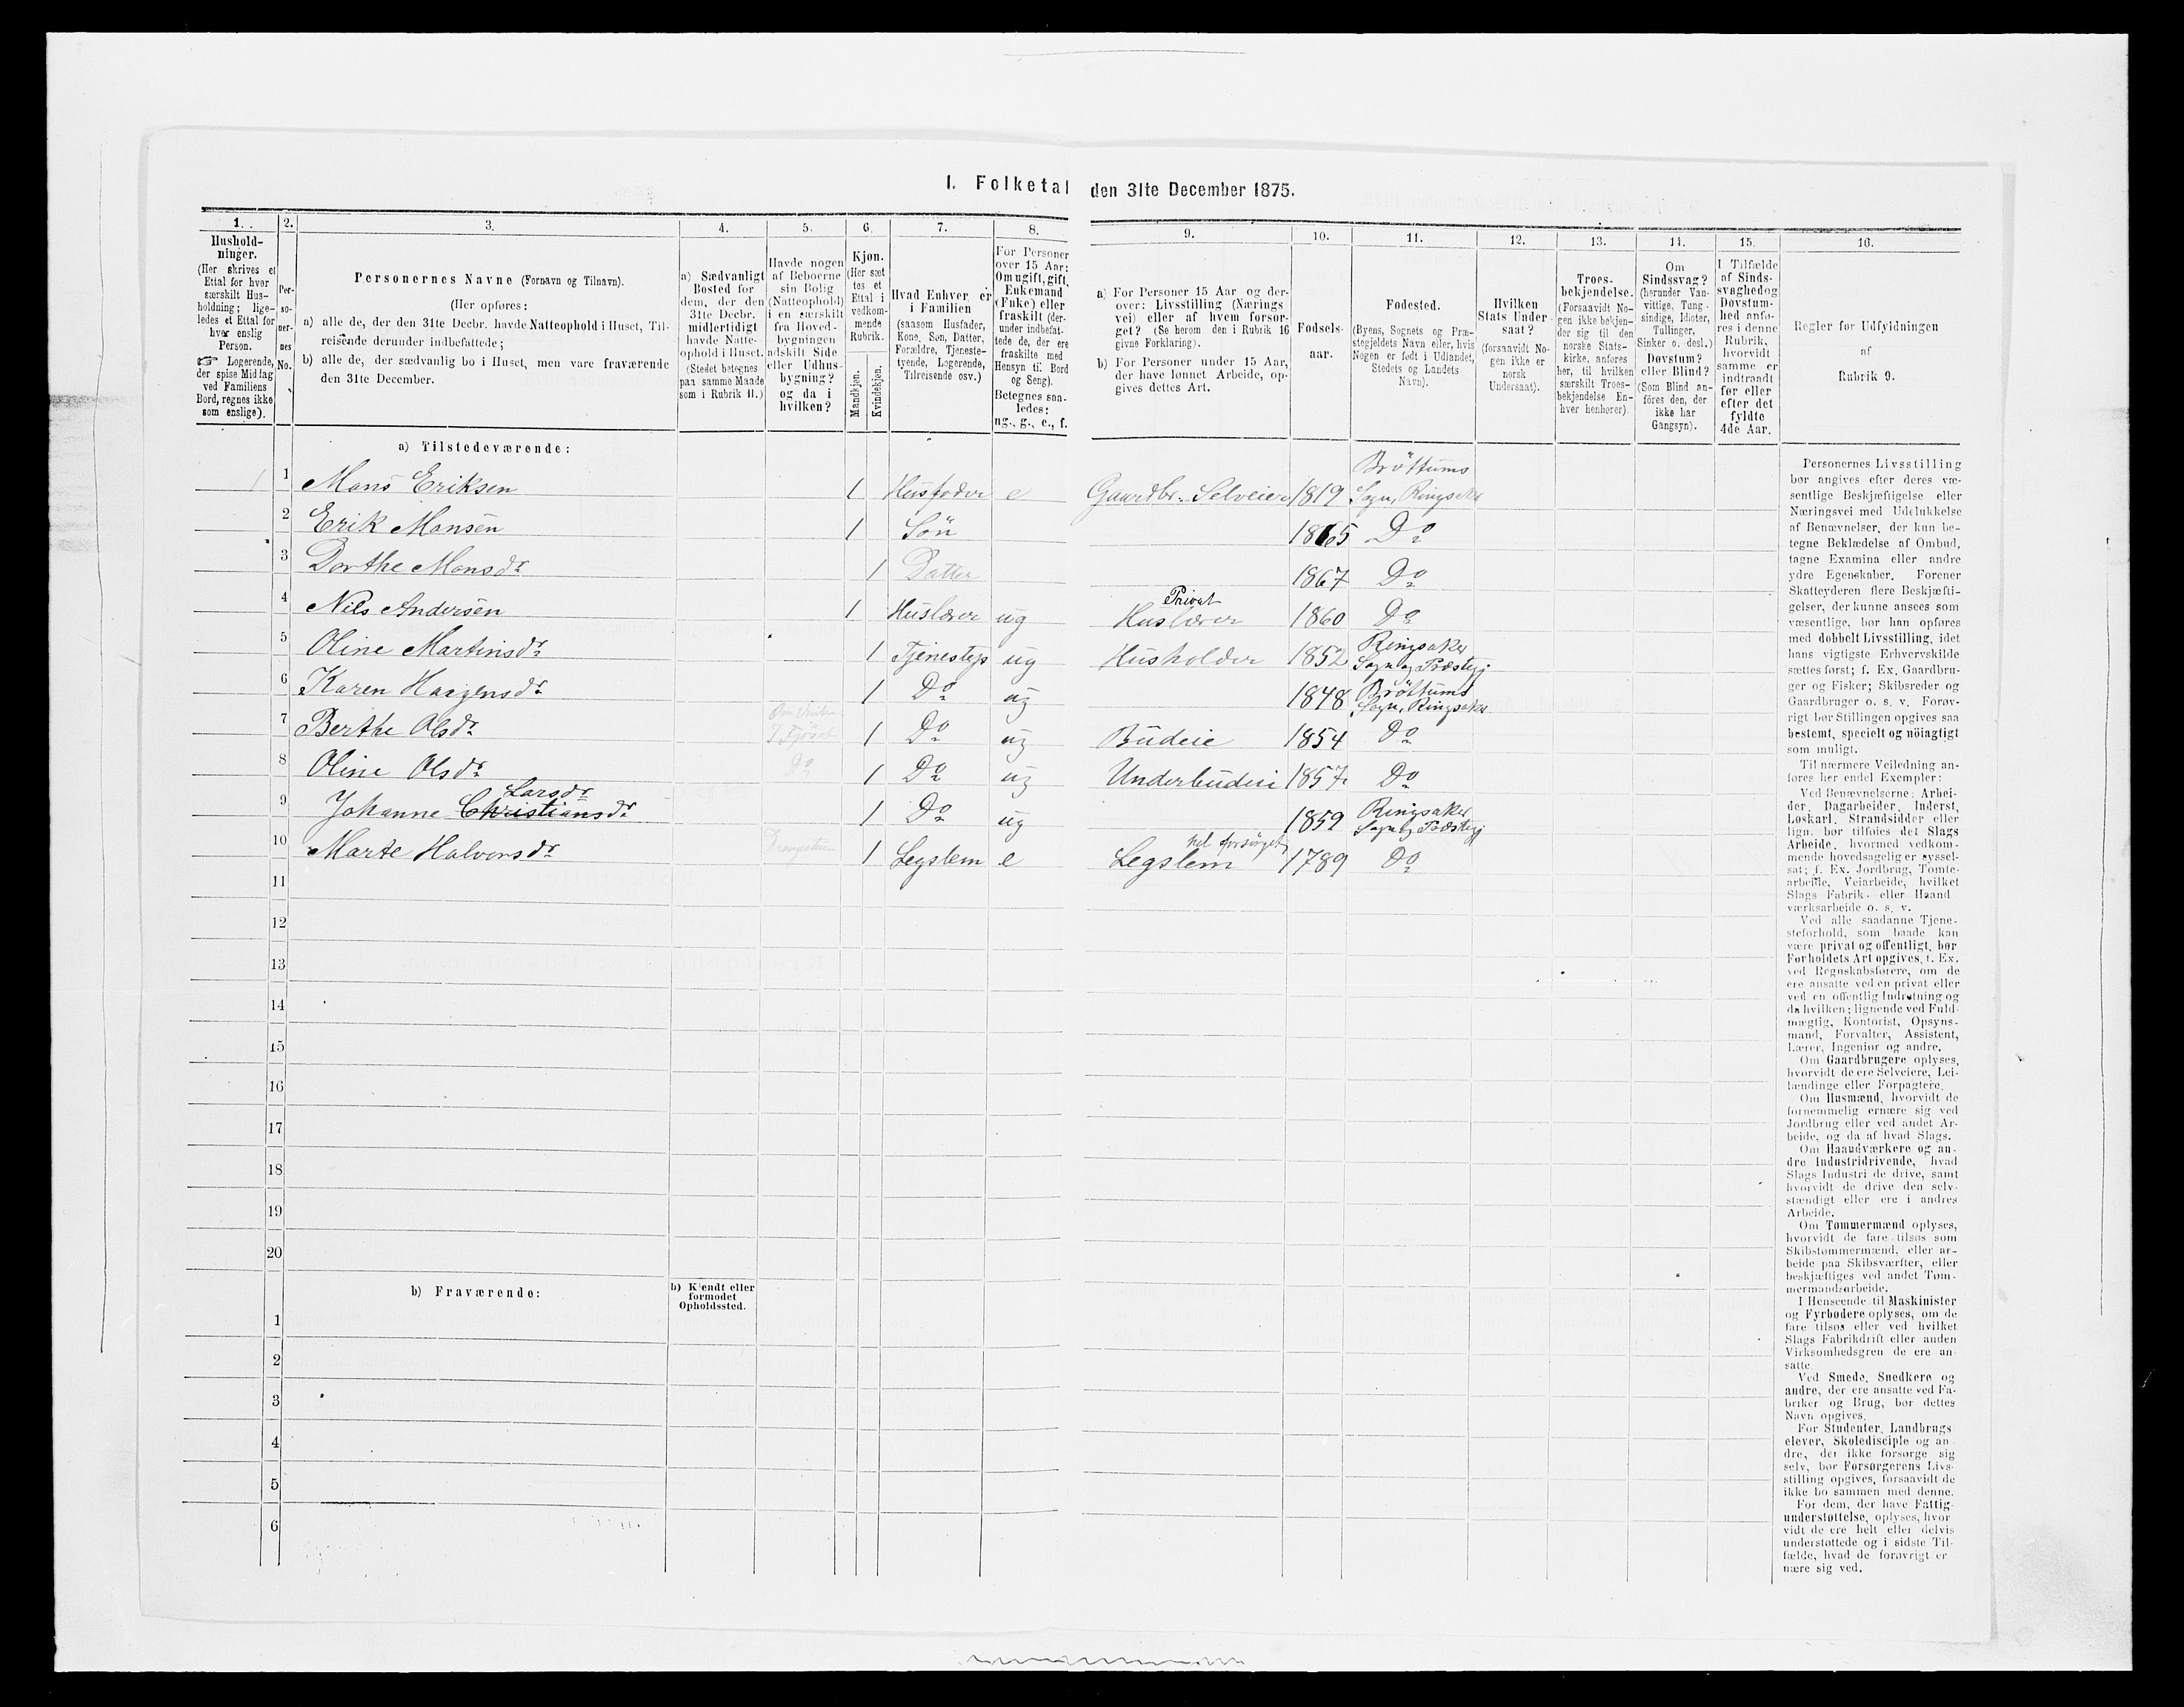 I. Folketal den 31te December 1875.
1.
Hushold-
ninger.
(Her skrives et
Ettal for hver
særskilt Hus-
holdning; lige-
ledes et Ettal for
hver enslig
Person.
☞ Logerende,
der spise Middag
ved Familiens
Bord, regnes ikke
som enslige).
2.
Per-
so-
ner-
nes
No.
3.
Personernes Navne (Fornavn og Tilnavn).
(Her opføres:
a) alle de, der den 31te Decbr. havde Natteophold i Huset, Til-
reisende derunder indbefattede;
b) alle de, der sædvanlig bo i Huset, men vare fraværende
den 31te December.
4.
a) Sædvanligt
Bosted for
dem, der den
31te Decbr.
midlertidigt
havde Natte-
ophold i Huset.
(Stedet betegnes
paa samme Maade
som i Rubrik 11.)
5.
Havde nogen
af Beboerne
sin Bolig
(Natteophold)
i en særskilt
fra Hoved-
bygningen
adskilt Side
eller Udhus-
bygning?
og da i
hvilken?
6.
Kjøn.
(Her sæt
tes et
Ettal i
vedkom-
mende
Rubrik.
Mandkjøn.
Kvindekjøn.
7.
Hvad Enhver er
i Familien
(saasom Husfader,
Kone, Søn, Datter,
Forældre, Tjeneste-
tyende, Logerende,
Tilreisende osv.)
8.
For Personer
over 15 Aar:
Om ugift, gift,
Enkemand
(Enke) eller
fraskilt (der-
under indbefat-
tede de, der ere
fraskilte med
Hensyn til Bord
og Seng).
Betegnes saa-
ledes:
ug., g., e., f.
9.
a) For Personer 15 Aar og der-
over: Livsstilling (Nærings
vei) eller af hvem forsør-
get? (Se herom den i Rubrik 16
givne Forklaring).
b) For Personer under 15 Aar,
der have lønnet Arbeide, op-
gives dettes Art.
10.
Fødsels-
aar.
11.
Fødested.
(Byens, Sognets og Præ-
stegjeldets Navn eller, hvis
Nogen er født i Udlandet,
Stedets og Landets
Navn).
12.
Hvilken
Stats Under-
saat?
(forsaavidt No-
gen ikke er
norsk
Undersaat).
13.
Troes-
bekjendelse.
(Forsaavidt No-
gen ikke bekjen-
der sig til den
norske Stats-
kirke, anføres
her, til hvilken
særskilt Troes-
bekjendelse En-
hver henhører).
14.
Om
Sindssvag?
(herunder Van-
vittige, Tung-
sindige, Idioter,
Tullinger,
Sinker o. desl.)
Døvstum?
eller Blind?
(Som Blind an-
føres den, der
ikke har
Gangsyn).
15.
I Tilfælde
af Sinds-
svaghed og
Døvstum-
hed anfø-
res i denne
Rubrik,
hvorvidt
samme er
indtraadt
før eller
efter det
fyldte
4de Aar.
16.
Regler for Udfyldningen
af
Rubrik 9.
a) Tilstedeværende:
1 1 Mons Eriksen 1 Husfader e Gaardbr. Selveier 1819 Bröttums Sogn, Ringsaker
2 Erik Monsen 1 Sön 1865 Do
3 Dorthe Monsdr 1 Datter 1867 Do
4 Nils Andersen 1 Huslærer ug Privat Huslærer 1860 Do
5 Oline Martinsdr 1 Tjenestep ug Husholder 1852 Ringsaker Sogn og Præstegj
6 Karen Haagensdr 1 Do ug 1848 Bröttums Sogn, Ringsaker
7 Berthe Olsdr I Fjöset 1 Do ug Budeie 1854 Do
8 Oline Olsdr Do 1 Do ug Underbudeie 1857 Do
9 Johanne Christiansdr Larsdr 1 Do ug 1859 Ringsaker Sogn og Præstegj
10 Marte Halvorsdr 1 Legslem e Legslem hel forsörget 1789 Do
11
12
13
14
15
16
17
18
19
20
b) Fraværende:
b) Kjendt eller
formodet
Opholdssted.
1
2
3
4
5
6
Personernes Livsstilling
bør angives efter deres væ-
sentlige Beskjæftigelse eller
Næringsvei med Udelukkelse
af Benævnelser, der kun be-
tegne Beklædelse af Ombud,
tagne Examina eller andre
ydre Egenskaber. Forener
Skatteyderen flere Beskjæfti-
gelser, der kunne ansees som
væsentlige, bør han opføres
med dobbelt Livsstilling, idet
hans vigtigste Erhvervskilde
sættes først; f. Ex. Gaardbru-
ger og Fisker; Skibsreder og
Gaardbruger o. s. v. Forøv-
rigt bør Stillingen opgives saa
bestemt, specielt og nöiagtigt
som muligt.
Til nærmere Veiledning an-
føres her endel Exempler:
Ved Benævnelserne: Arbei-
der, Dagarbeider, Inderst,
Løskarl, Strandsidder eller
lign. bør tilføies det Slags
Arbeide, hvormed vedkom-
mende hovedsagelig er syssel-
sat; f. Ex. Jordbrug, Tomte-
arbeide, Veiarbeide, hvilket
Slags Fabrik- eller Haand
værksarbeide o. s. v.
Ved alle saadanne Tjene-
steforhold, som baade kan
være privat og offentligt, bør
Forholdets Art opgives, f. Ex.
ved Regnskabsførere, om de
ere ansatte ved en privat eller
ved en offentlig Indretning og
da hvilken; lignende ved Fuld-
mægtig, Kontorist, Opsyns-
mand, Forvalter, Assistent,
Lærer, Ingeniør og andre.
Om Gaardbrugere oplyses,
hvorvidt de ere Selveiere, Lei-
lændinge eller Forpagtere.
Om Husmænd, hvorvidt de
fornemmelig ernære sig ved
Jordbrug eller ved andet Ar-
beide, og da af hvad Slags.
Om Haandværkere og an-
dre Industridrivende, hvad
Slags Industri de drive, samt
hvorvidt de drive den selv-
stændigt eller ere i andres
Arbeide.
Om Tømmermænd oplyses,
hvorvidt de fare tilsøs som
Skibstømmermænd, eller ar-
beide paa Skibsværfter, eller
beskjæftiges ved andet Tøm-
mermandsarbeide.
I Henseende til Maskinister
og Fyrbødere oplyses, om de
fare tilsøs eller ved hvilket
Slags Fabrikdrift eller anden
Virksomhedsgren de ere an-
satte.
Ved Smede, Snedkere og
andre, der ere ansatte ved Fa-
briker og Brug, bør dettes
Navn opgives.
For Studenter, Landbrugs
elever, Skoledisciple og an
dre, der ikke forsørge sig
selv, bør Forsørgerens Livs-
stilling opgives, forsaavidt de
ikke bo sammen med denne.
For dem, der have Fattig-
understøttelse, oplyses, hvor
vidt de ere helt eller delvis
understøttede og i sidste Til-
fælde, hvad de forøvrigt er
nære sig ved.